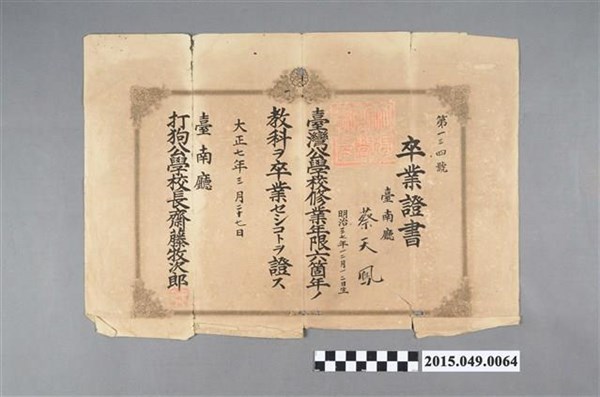 第一三四號
卒業證書
臺南廳
蔡天鳳
明治三七年一二月一二日生
臺灣公學校修業年限六箇年ノ
教科ヲ卒業セシコトヲ證ス
大正七年三月二十七日
臺南廳
打狗公學校長齋藤牧次郎
2015.049.0064